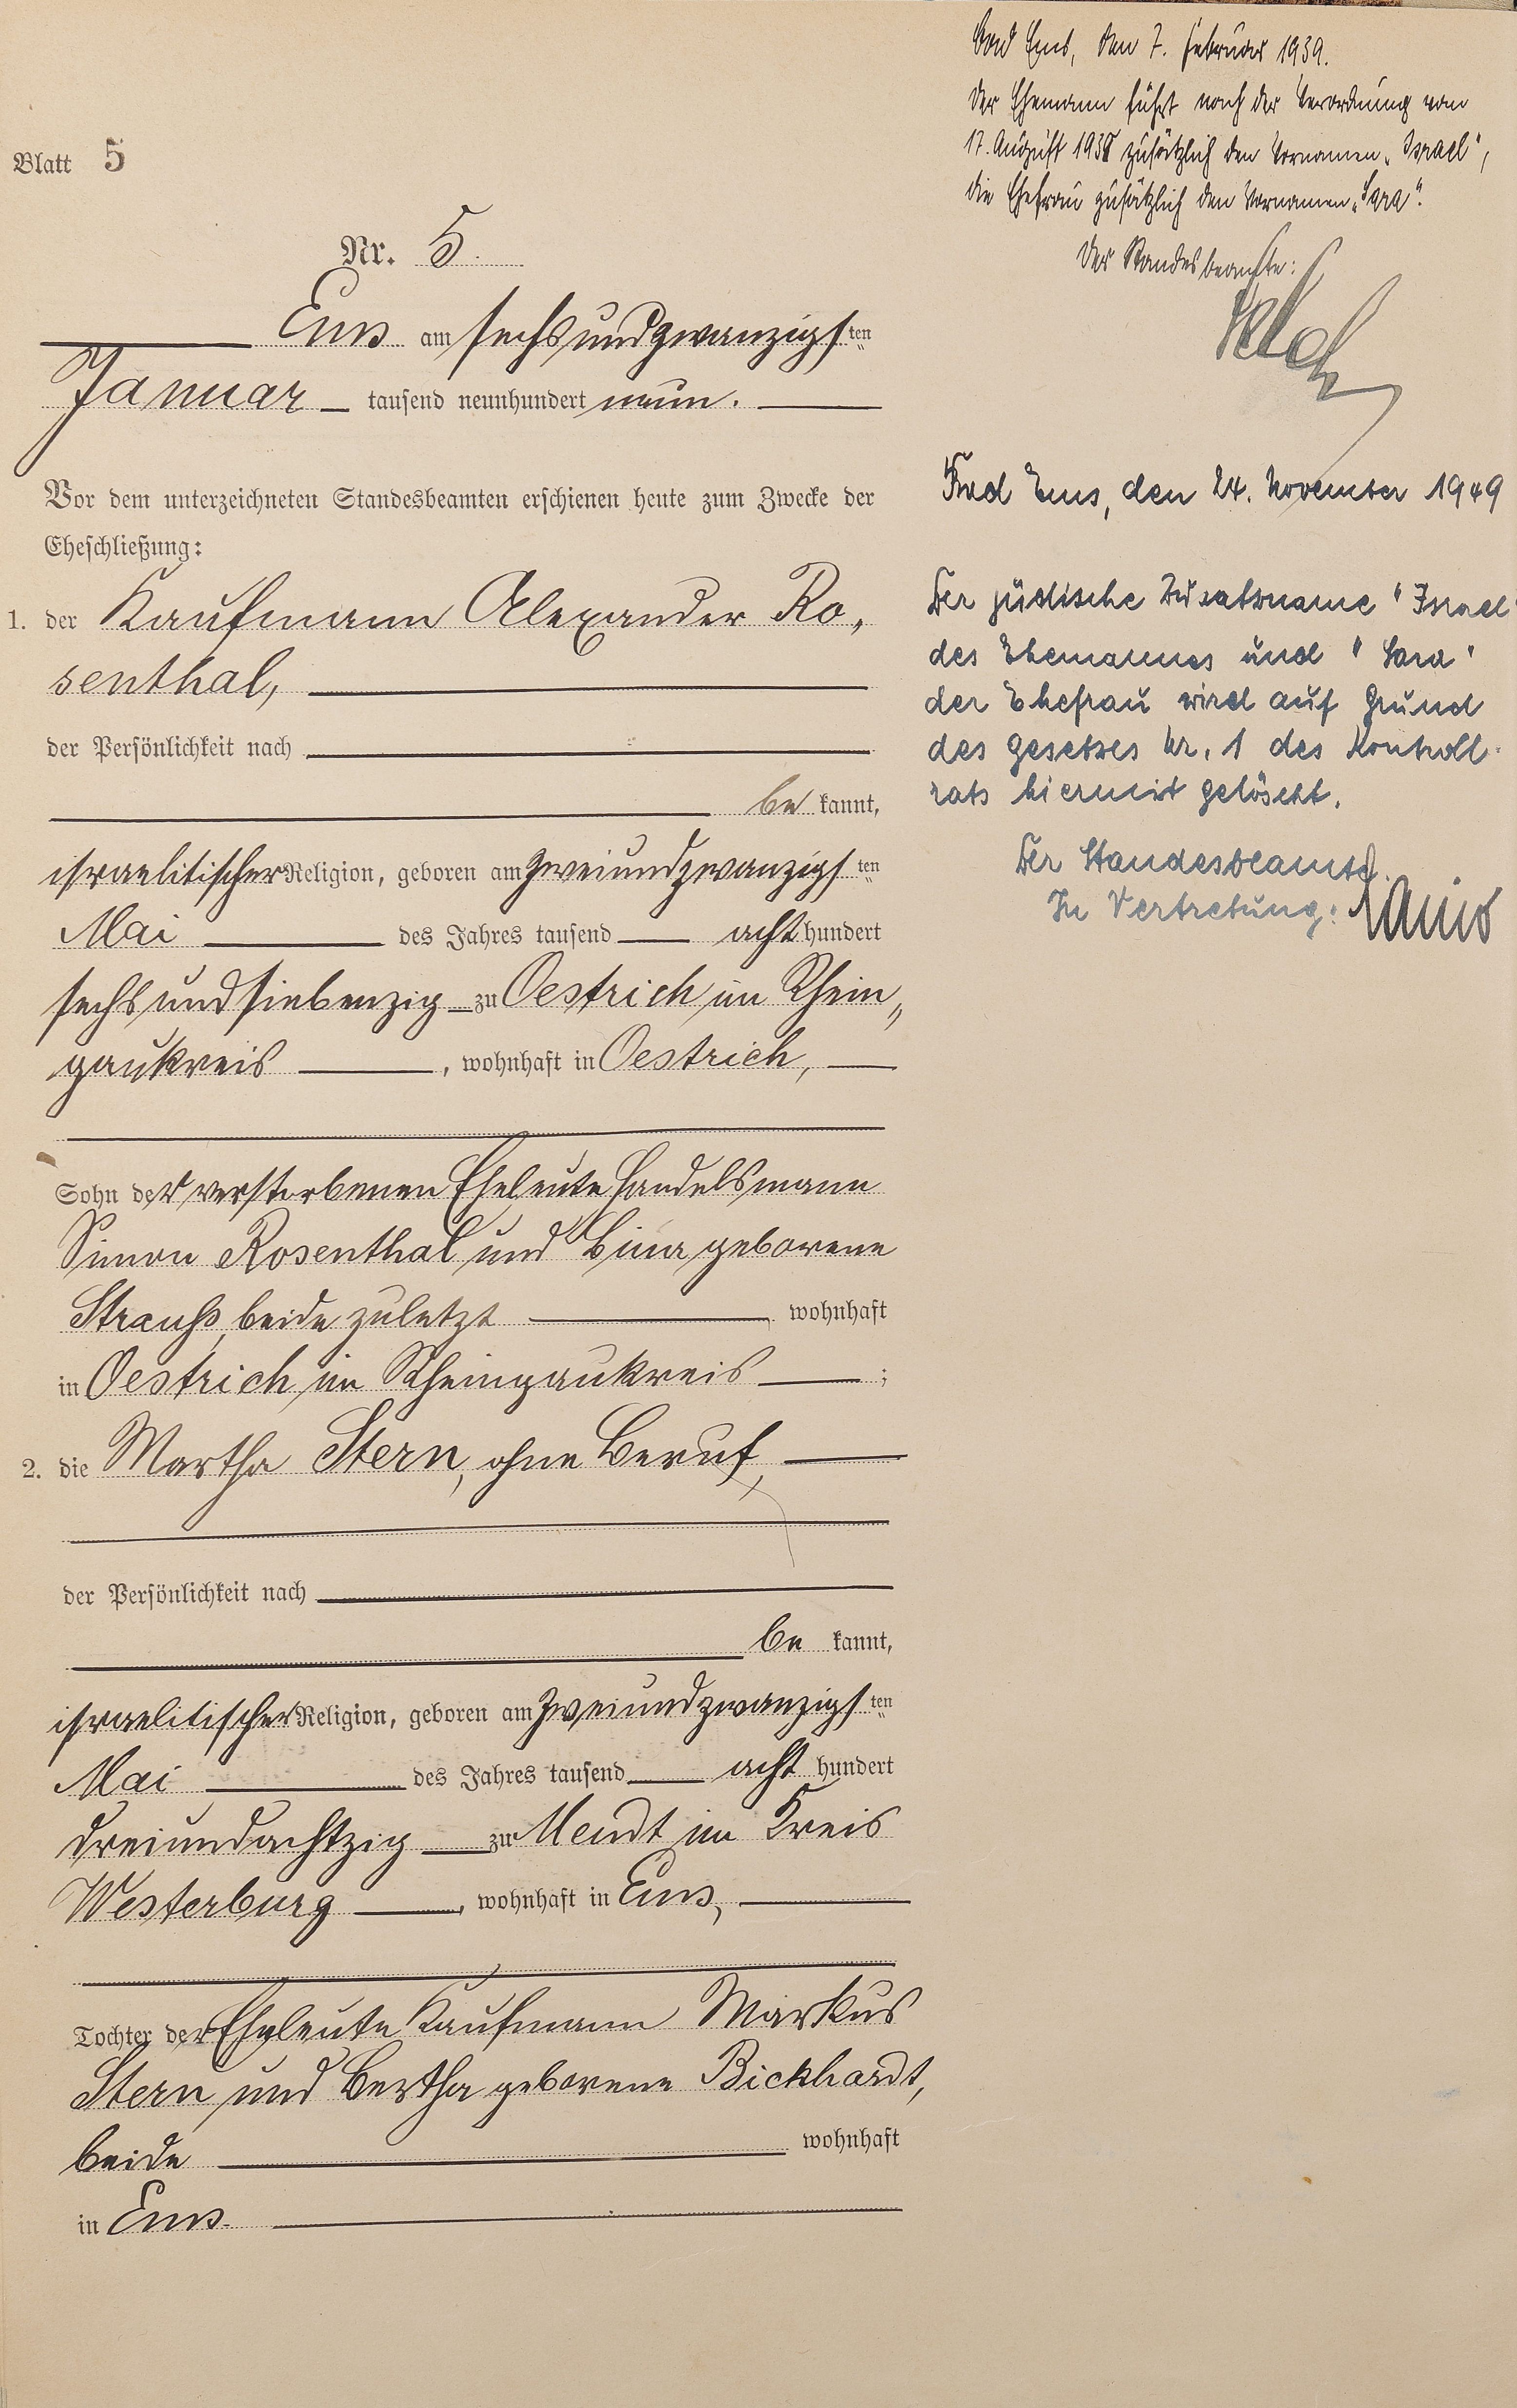 Blatt 5
Nr. 5.
Ems am sechsundzwanzigsten
Januar tausend neunhundert neun.
Vor dem unterzeichneten Standesbeamten erschienen heute zum Zwecke der
Eheschließung:
1. der Kaufmann Alexander Ro,
senthal,
der Persönlichkeit nach
be kannt,
israelitischer Religion, geboren am zweiundzwanzigsten
Mai des Jahres tausend acht hundert
sechsundsiebenzig zu Oestrich im Rhein„
gaukreis, wohnhaft in Oestrich,
Sohn der verstorbenen Eheleute Handelsmann
Simon Rosenthal und Bina geborene
Strauß, beide zuletzt wohnhaft
in Oestrich im Rheingaukreis;
2. die Martha Stern, ohne Beruf,
der Persönlichkeit nach
be kannt,
israelitischer Religion, geboren am zweiundzwanzigsten
Mai des Jahres tausend acht hundert
dreiundachtzig zu Meudt im Kreis
Westerburg, wohnhaft in Ems,
Tochter der Eheleute Kaufmann Markus
Stern und Bertha geborene Bickhardt,
beide wohnhaft
in Ems.
Bad Ems, den 7. Februar 1939.
Der Ehemann führt nach der Verordnung vom
17. August 1938 zusätzlich den Vornamen „Israel",
die Ehefrau zusätzlich den Vornamen „Sara".
Der Standesbeamte:
Bad Ems, den 24. November 1949
Der jüdische Zusatzname "Israel"
des Ehemannes und "Sara"
der Ehefrau wird auf Grund
des Gesetzes Nr. 1 des Kontroll-
rats hiermit gelöscht.
Der Standesbeamte.
In Vertretung: